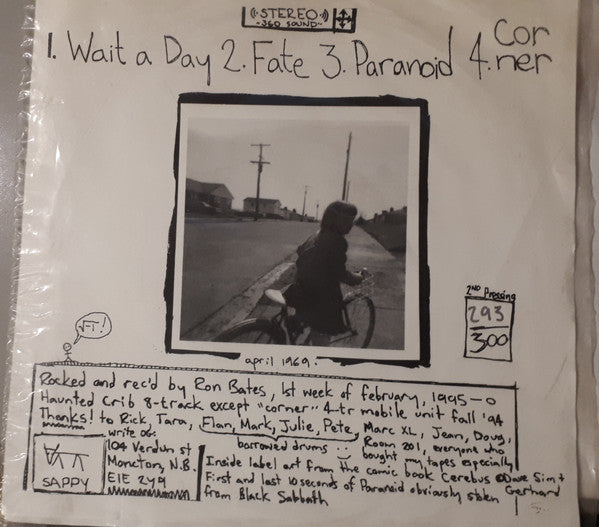 STEREO
360 SOUND
1. Wait a Day 2. Fate 3. Paranoid 4. Corner
2ND Pressing
293
300
april 1969.
Rocked and rec'd by Ron Bates, 1st week of february, 1995 - @
Haunted Crib 8-track except "corner" 4-tr mobile unit fall '94
Thanks! to Rick, Tara, Flan, Mark, Julie, Pete, Marc XL, Jean, Doug,
borrowed drums Room 201, everyone who
bought my tapes especially
write OG:
104 Verdun st
Moncton, N.B.
E1E 2Y9
SAPPY
Inside label art from the comic book Cerebus © Dave Sim +
Gerhard
First and last 10 seconds of Paranoid obviously stolen
from Black Sabbath